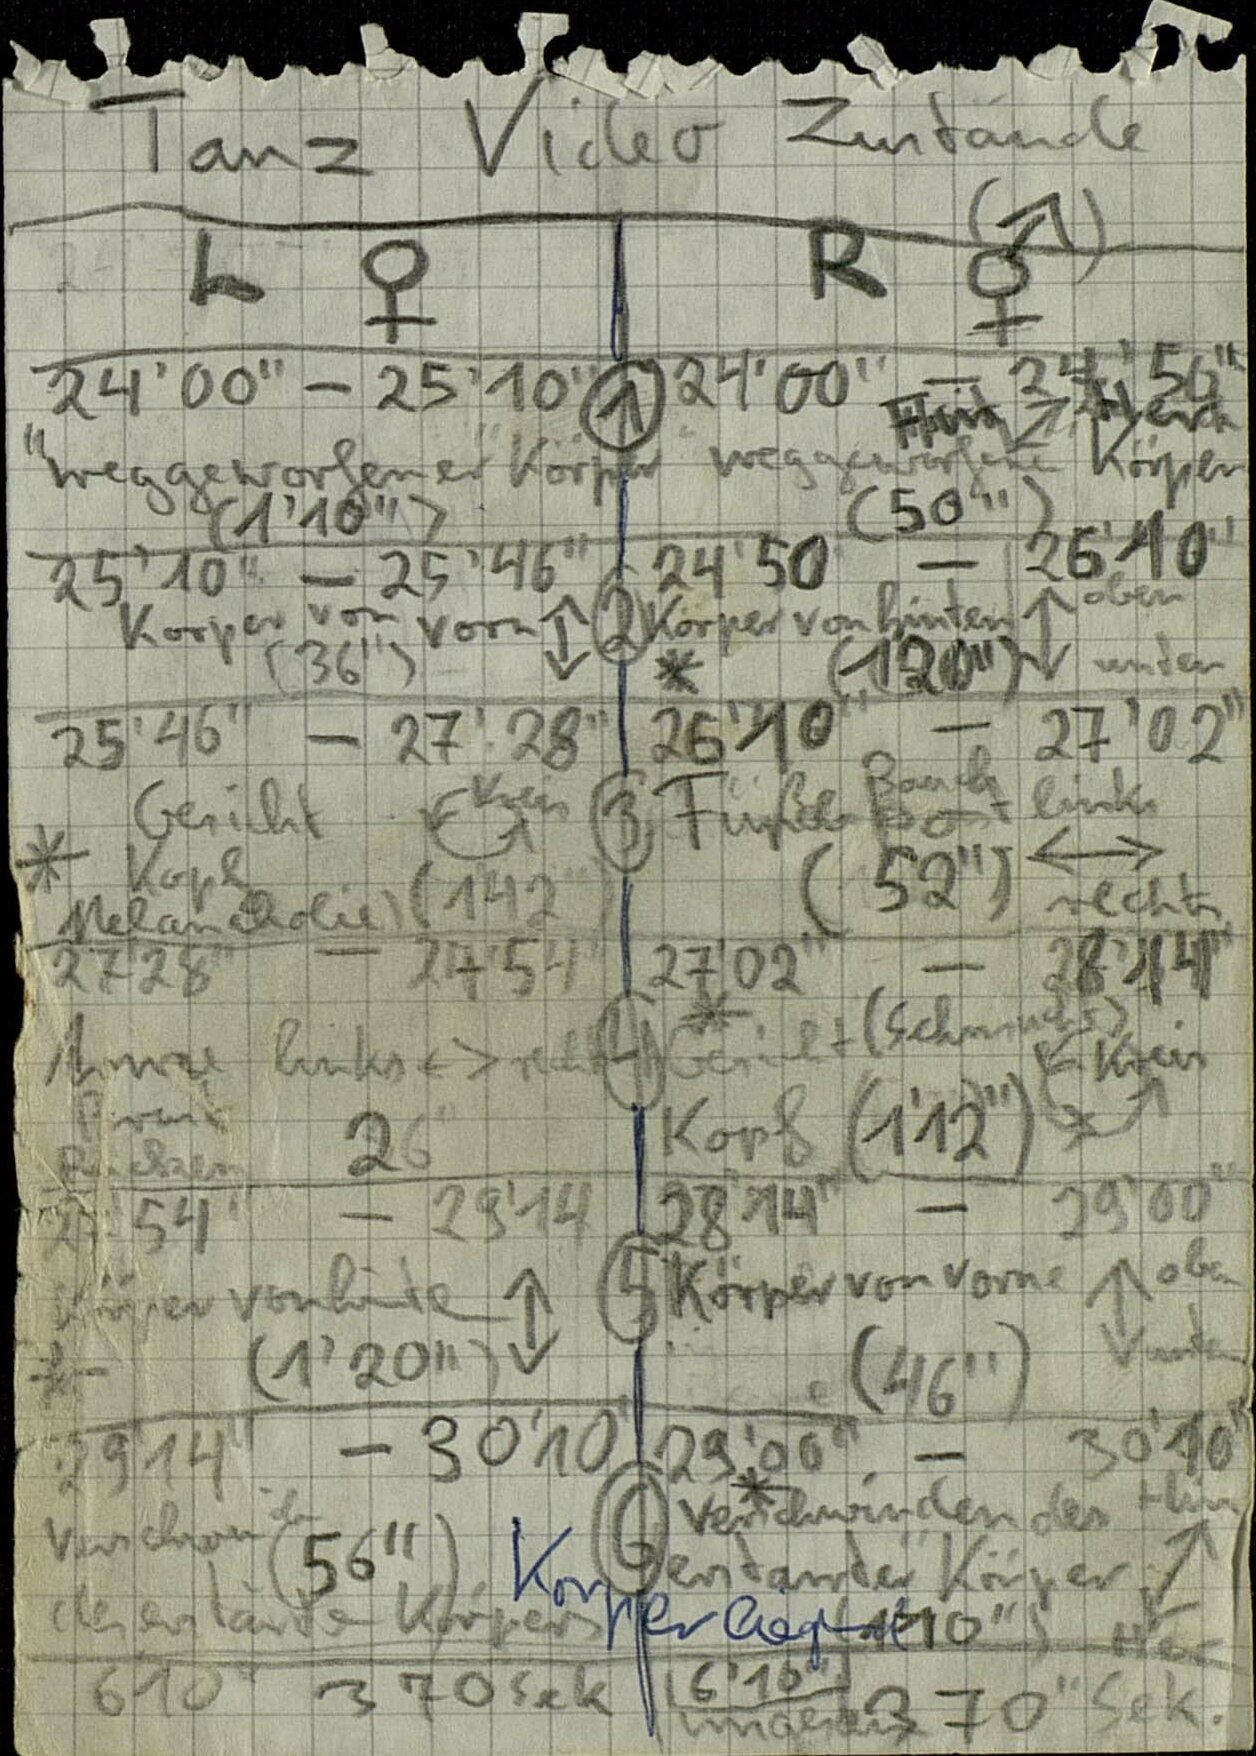 Tanz Video Zustände
L ♀ R ♀ (↗)
24'00" – 25'10" ① 24'00" – 24'56"
"weggeworfener Körper" weggeworfene Körper
(1'10") (50")
25'10" – 25'46" 24'50 – 26'10"
Körper von vorn ↕ ② Körper von hinten ↕ oben
(36") * (120") unten
25'46" – 27'28" 26'10" – 27'02"
Gesicht Kreis ③ Füße Bauch links
* Kopf (52") ↔
Melancholie) (142") rechts
27'28" – 27'54" 27'02" – 28'14"
*
links <-> ④ Gesicht (Schmuck) Kreis
26" Kopf (1'12")
Rücken
27'54" – 29'14 28'14" – 29'00"
Körper von hinten ↕ ⑤ Körper von vorne ↕ oben
* (1'20") (46") unten
29'14" – 30'10" 29'00" – 30'10"
*
⑥ Verschwinden des
(56") erstarrter Körper
des erstarrten Körpers Körper liegt (1'10")
6'10" 370 Sek 6'10" 370" Sek.